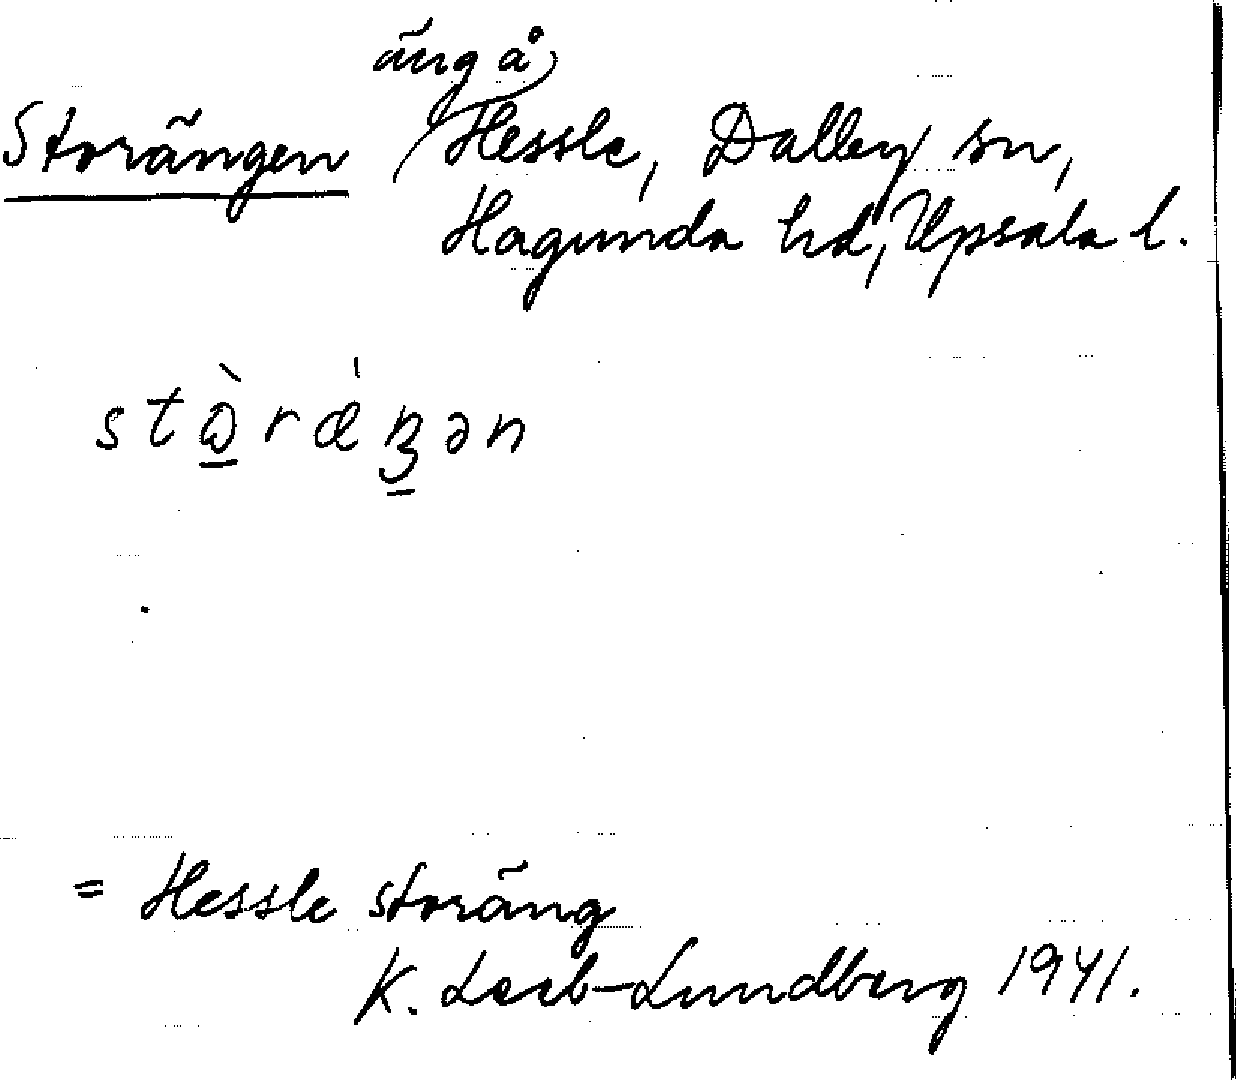 Storängen äng å Hessle, Dalby sn,
Hagunda hd, Upsala l.
stòrǽŋən
= Hessle storäng
K. Leeb-Lundberg 1941.